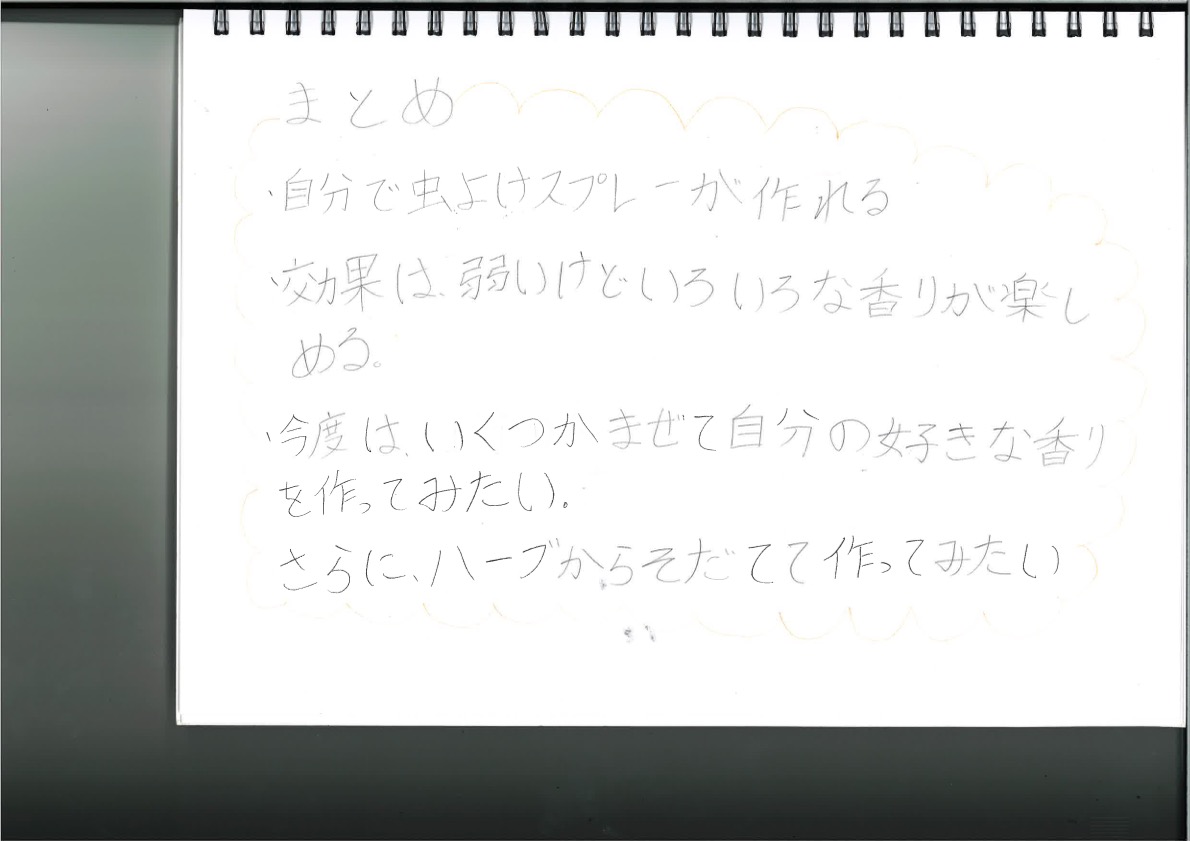 まとめ
・自分で虫よけスプレーが作れる
・効果は、弱いけどいろいろな香りが楽し
める。
・今度は、いくつかまぜて自分の好きな香り
を作ってみたい。
さらに、ハーブからそだてて作ってみたい